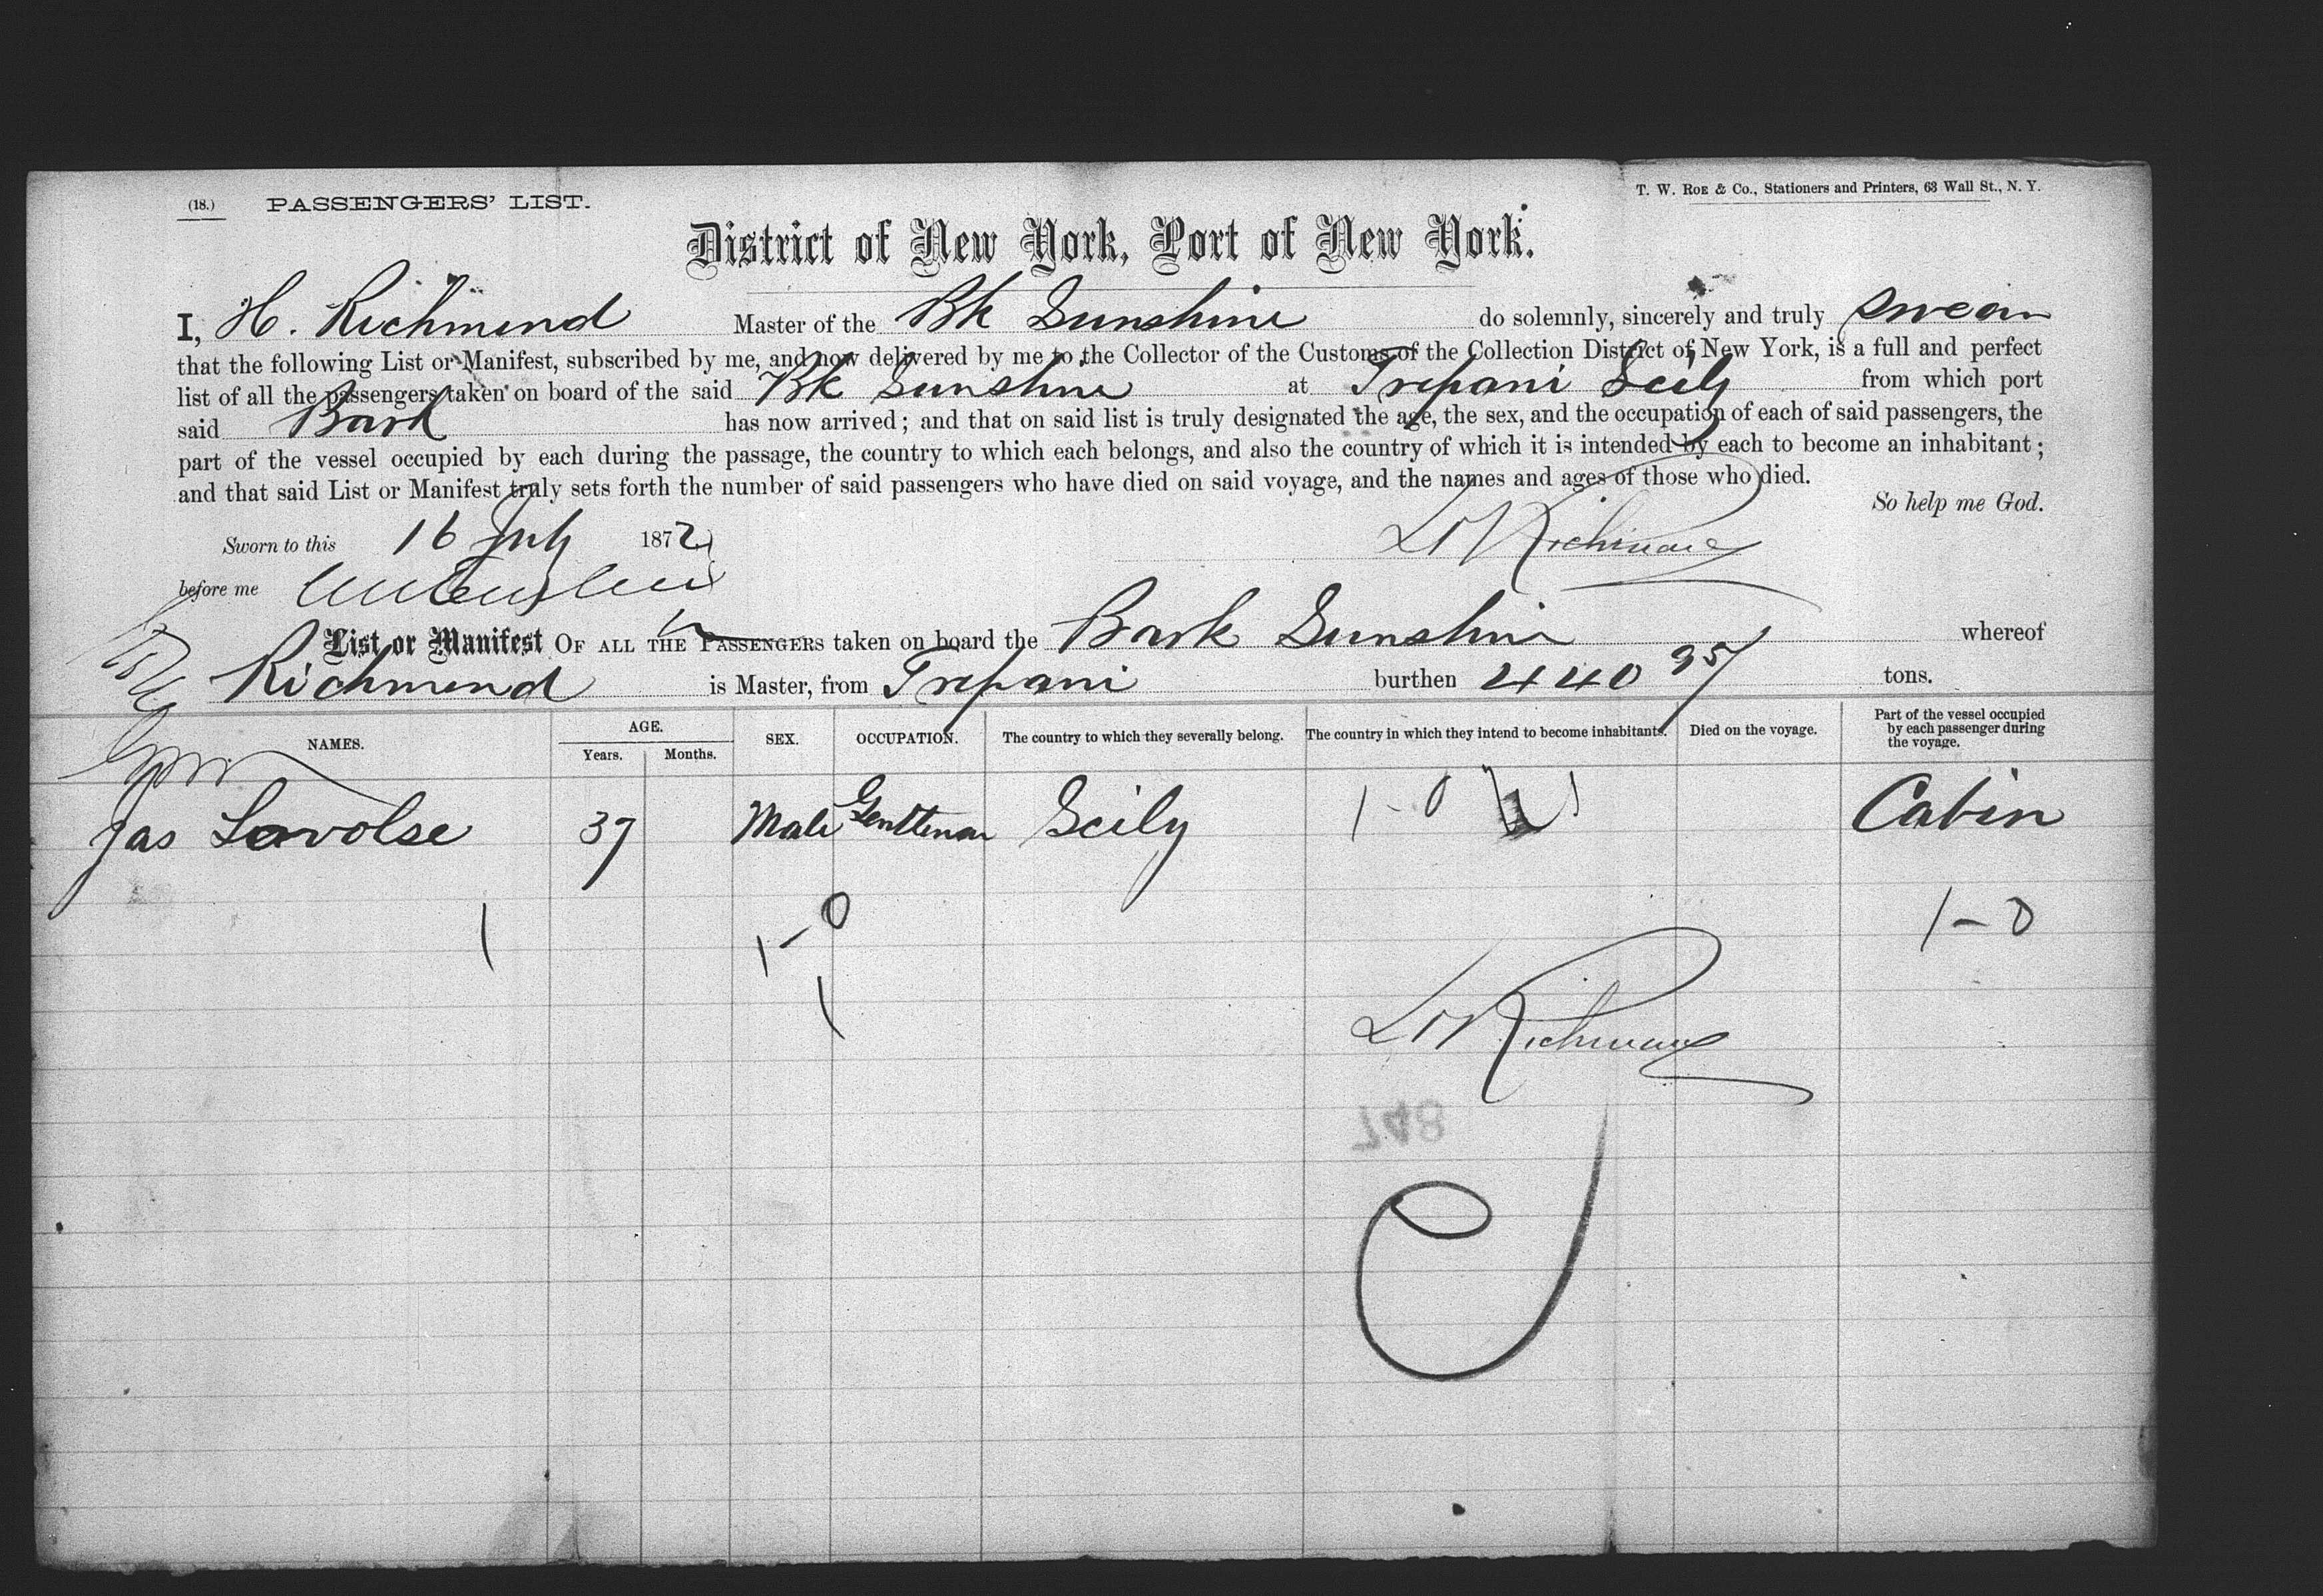 (18.) PASSENGERS' LIST.
T. W. ROE & Co., Stationers and Printers, 63 Wall St., N. Y.
District of New York, Port of New York.
I, H. Richmond Master of the Bk Sunshine do solemnly, sincerely and truly swear
that the following List or Manifest, subscribed by me, and now delivered by me to the Collector of the Customs of the Collection District of New York, is a full and perfect
list of all the passengers taken on board of the said Bk Sunshine at Trepani Scily from which port
said Bark has now arrived; and that on said list is truly designated the age, the sex, and the occupation of each of said passengers, the
part of the vessel occupied by each during the passage, the country to which each belongs, and also the country of which it is intended by each to become an inhabitant;
and that said List or Manifest truly sets forth the number of said passengers who have died on said voyage, and the names and ages of those who died.
So help me God.
Sworn to this 16 July 1872
Richmond
before me
List or Manifest OF ALL THE PASSENGERS taken on board the Bark Sunshin whereof
Richmond is Master, from Trepani burthen 440 97 tons.
NAMES. AGE. Years. Months. SEX. OCCUPATION. The country to which they severally belong. The country in which they intend to become inhabitants. Died on the voyage. Part of the vessel occupied by each passenger during the voyage.
Jas Lavolse 37 Male Gentleman Scily 1-0 Cabin
1 1-0 1-0
1
Richmond
847